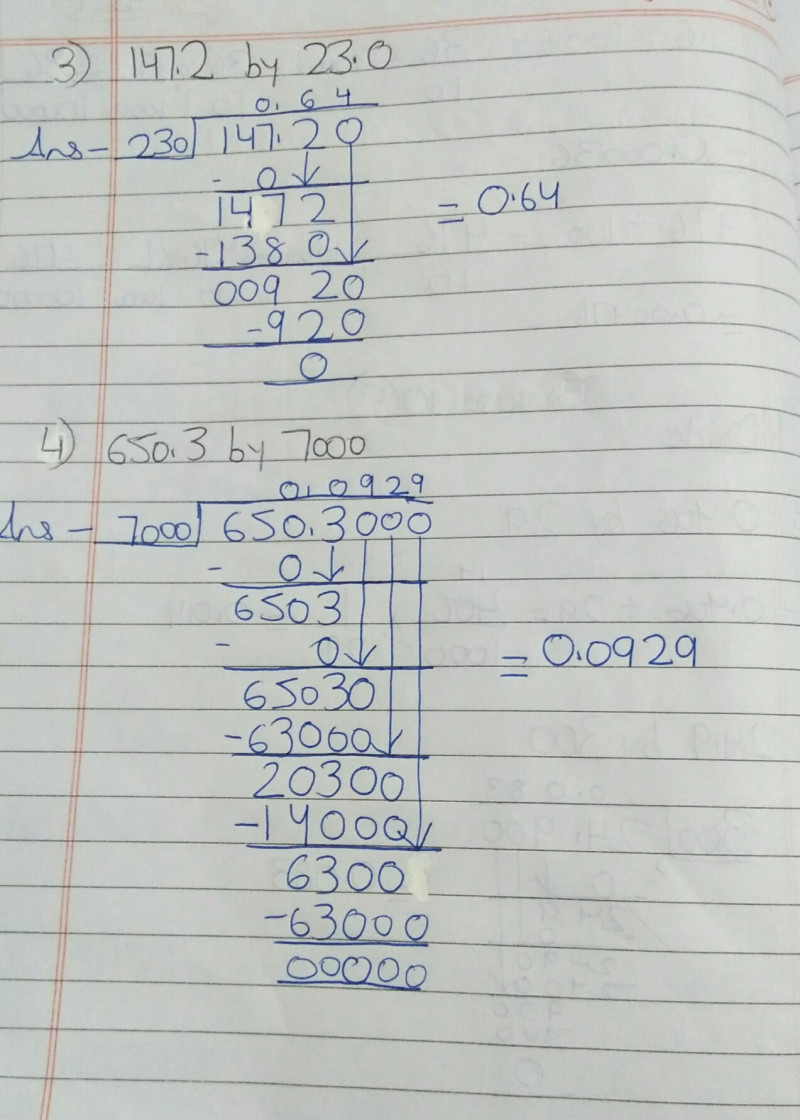 3) 147.2 by 23.0
0.64
Ans - 230 147.20
- 0
1472 = 0.64
-1380
00920
-920
0
4) 650.3 by 7000
0.0929
Ans - 7000 650.3000
- 0
6503
- 0 = 0.0929
65030
-63000
20300
-14000
6300
-63000
00000